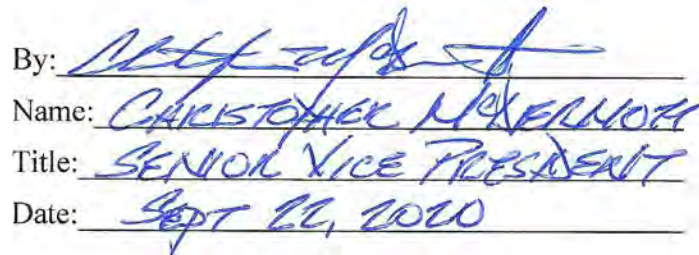 By:
Name: CHRISTOPHER McDERMOTT
Title: SENIOR VICE PRESIDENT
Date: SEPT 22, 2020